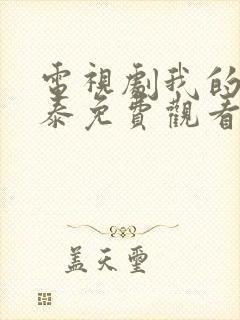 電視劇我的
泰免費觀看
蓋天璽